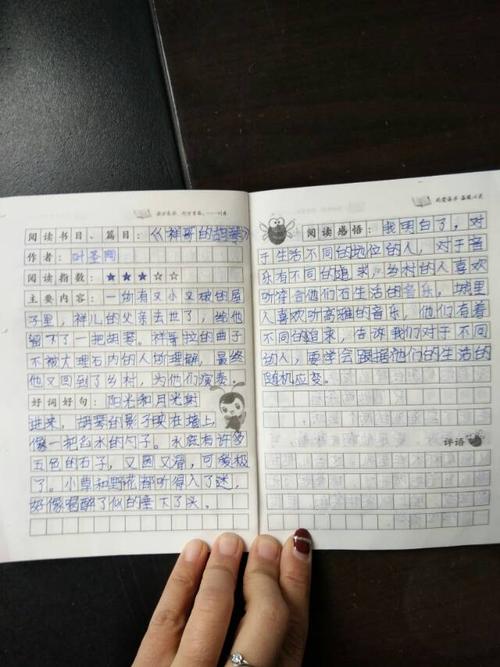 阅读书目、篇目：《祥哥的胡琴》
作者：叶圣陶
阅读指数：★★★☆☆
主要内容：一幢有又小又破的屋
子里，祥儿的父亲去世了，给他
留下了一把胡琴。祥哥拉的曲子
不被大理石内的人场理解，最终
他又回到了乡村，为他们演奏。
好词好句：阳光和月光射
进来，胡琴的影子映在墙上，
像一把舀水的勺子。水底有许多
五色的石子，又圆又滑，可爱极
了。小草和野花都听得入了迷，
好像喝醉了似的垂下了头。
阅读感悟：我明白了，对
于生活不同的地位的人，对于音
乐有不同的追求。乡村的人喜欢
听符合他们石生活的音乐，城里
人喜欢听高雅的音乐，他们有着
不同的追求，告诉我们对于不同
的人，要学会跟据他们的生活的
随机应变。
评语